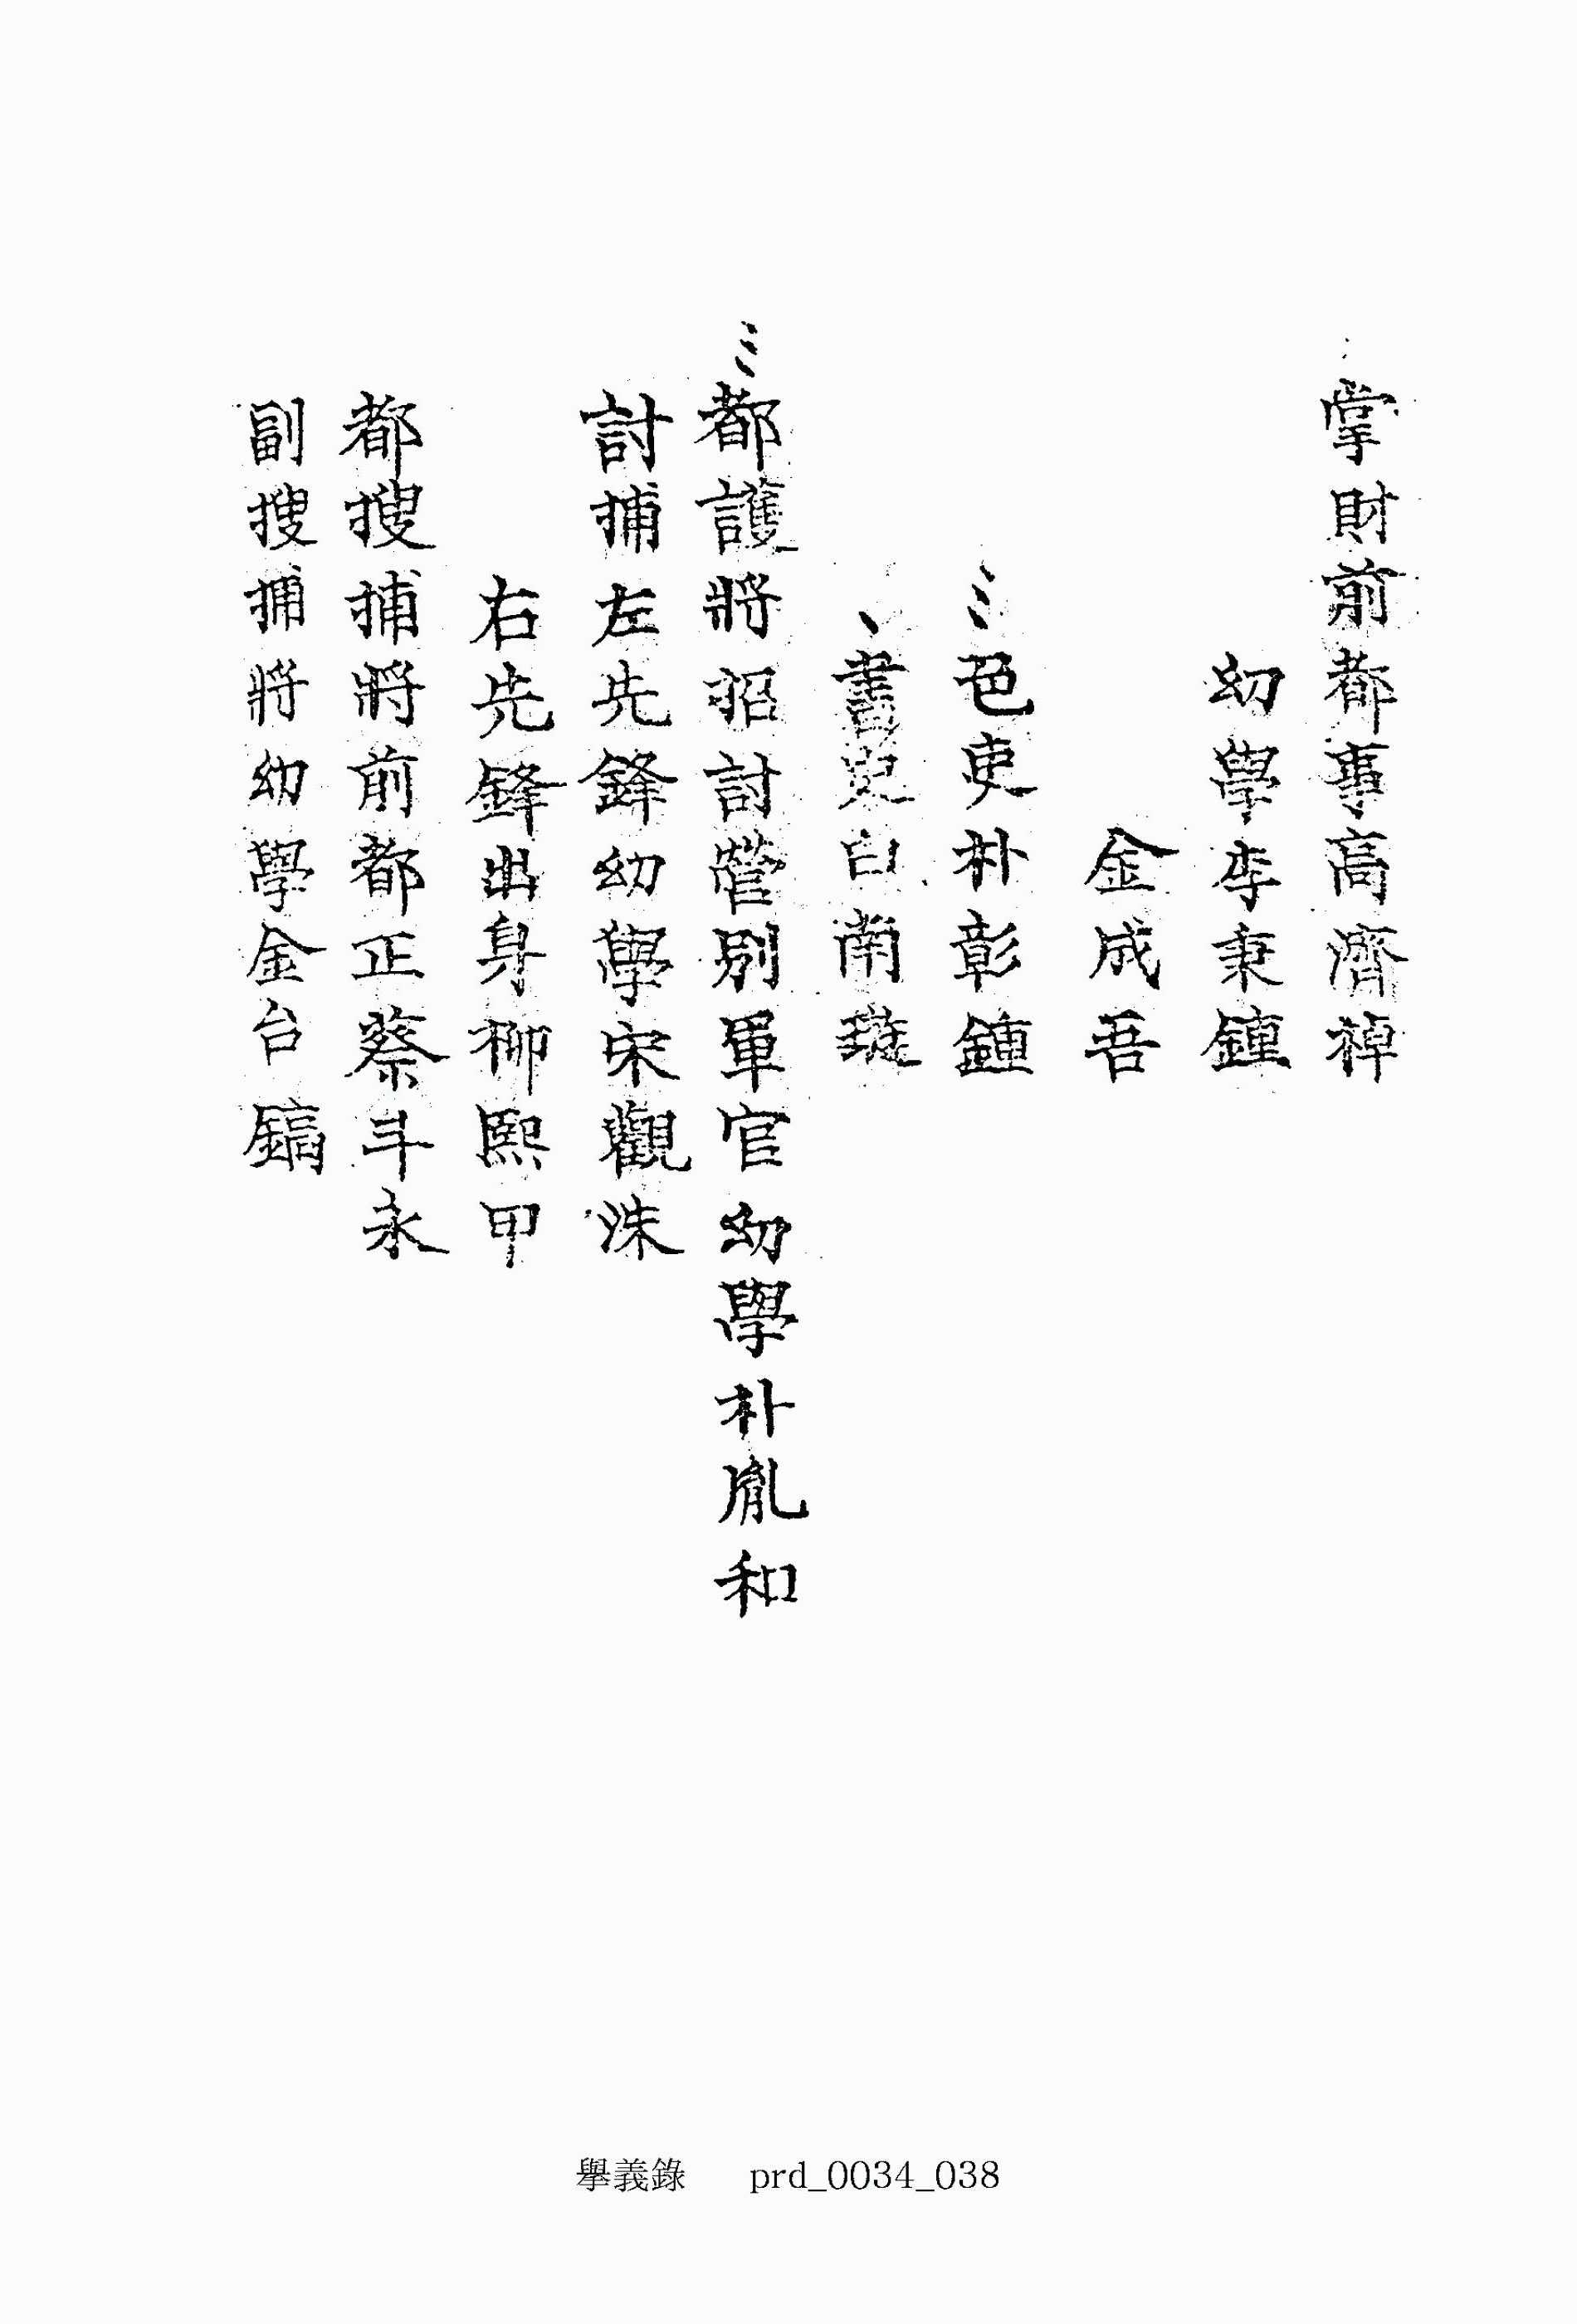 掌財前都事高濟楟
幼學李秉鍾
金成吾
色吏朴彰鍾
書吏白南璇
都護將招討營別軍官幼學朴胤和
討捕左先鋒幼學宋觀洙
右先鋒出身柳熙甲
都搜捕將前都正蔡斗永
副搜捕將幼學金台鎬
擧義錄 prd_0034_038